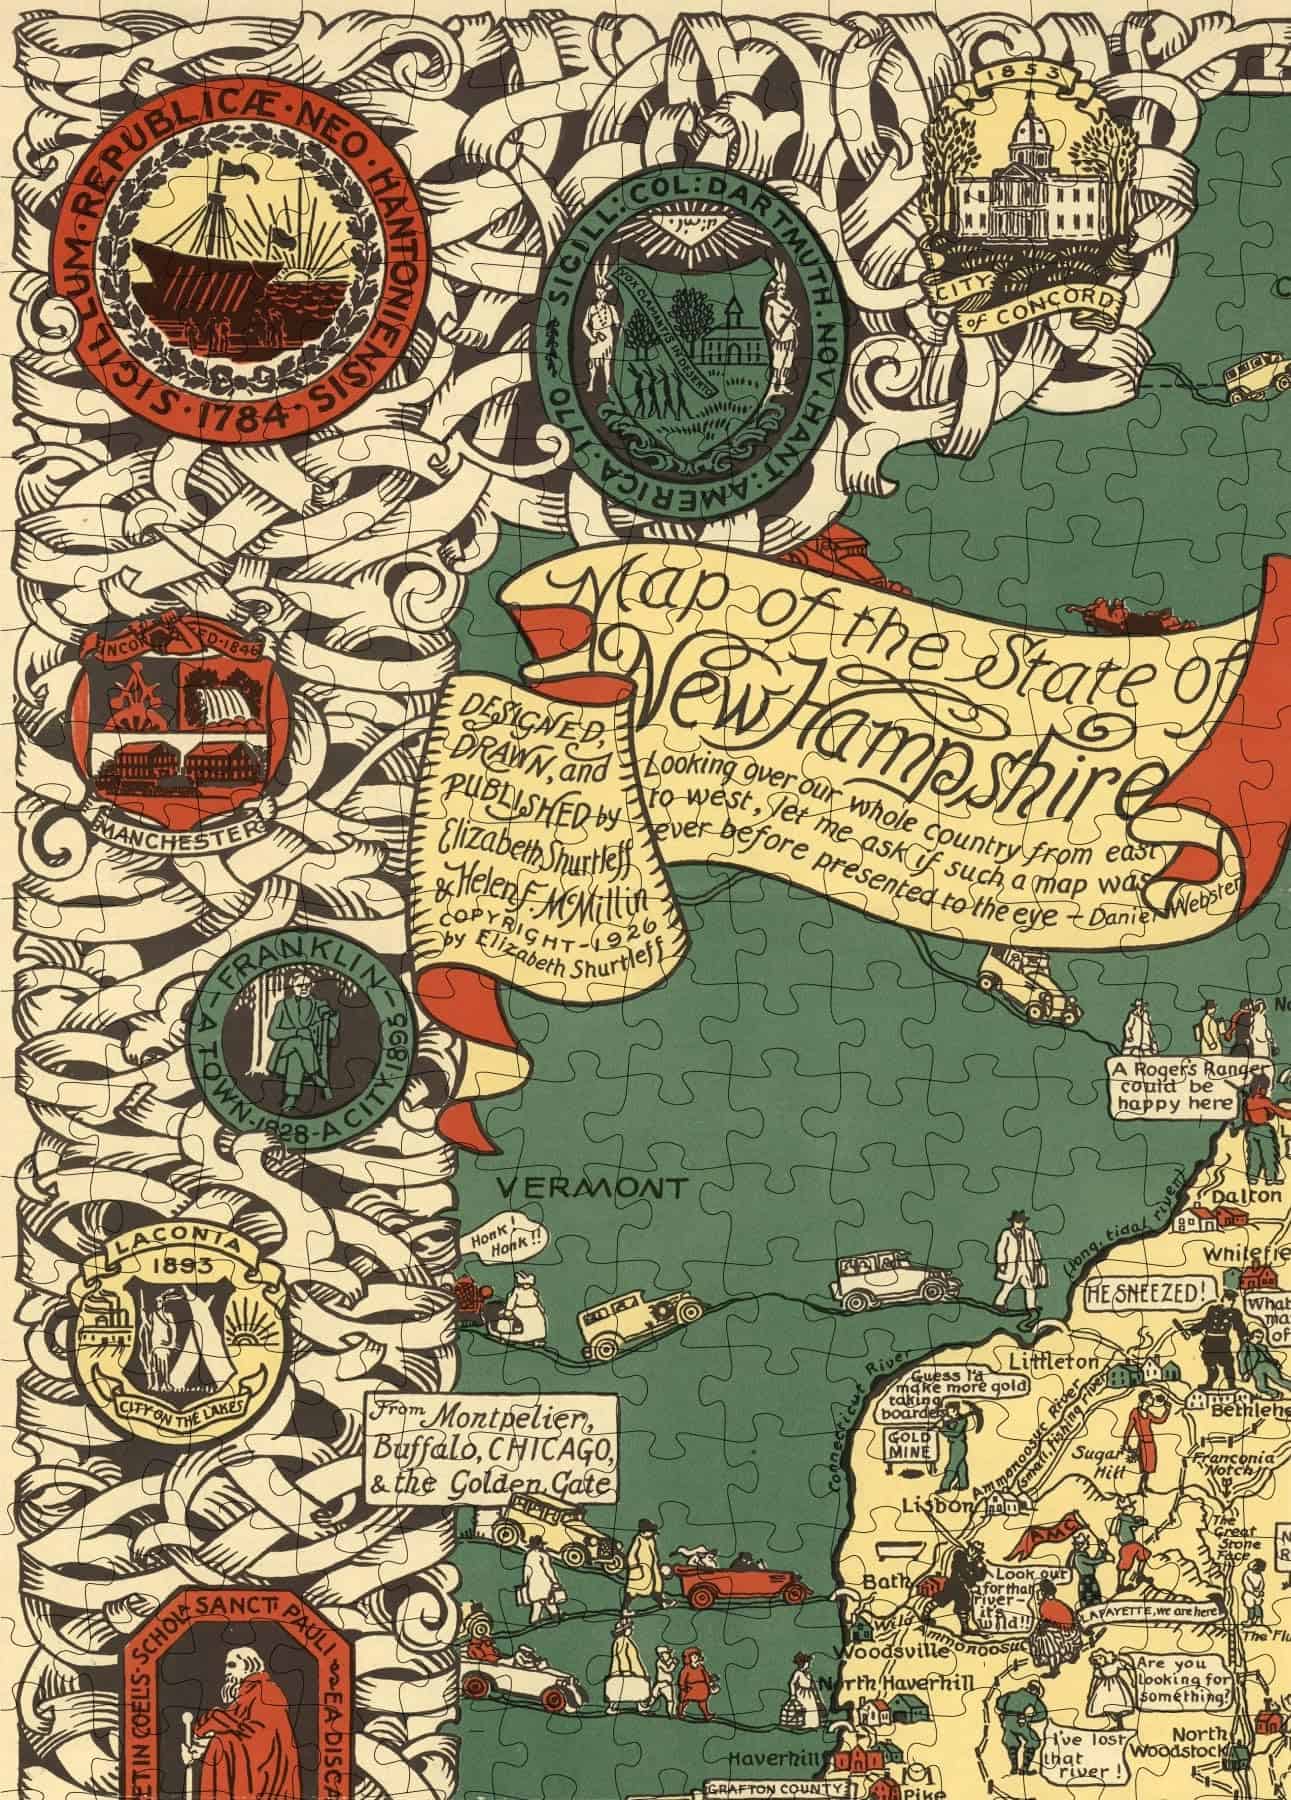 SIGILLUM·REPUBLICÆ·NEO·HANTONIENSIS·1784·
SIGILL:COL:DARTMUTH.NOV.HANT:AMERICA·1770
VOX CLAMANTIS IN DESERTO
1853
CITY
of CONCORD
Map of the State of
New Hampshire
Looking over our whole country from east
to west, let me ask if such a map was
ever before presented to the eye — Daniel Webster
DESIGNED,
DRAWN, and
PUBLISHED by
Elizabeth Shurtleff
& Helen F. McMillin
COPYRIGHT—1926
by Elizabeth Shurtleff
MANCHESTER
—FRANKLIN—
A TOWN·1828—A CITY·1895
A Rogers Ranger
could be
happy here
Dalton
VERMONT
Honk!
Honk!!
(long, tidal river)
LACONIA
1893
CITY ON THE LAKES
HE SNEEZED!
What
Littleton
Connecticut River
Guess I'd
make more gold
taking
boarders
GOLD
MINE
Ammonoosuc River
(small fishing river)
Sugar
Hill
Franconia
Notch
From Montpelier,
Buffalo, CHICAGO,
& the Golden Gate
Lisbon
AMC
The
Great
Stone
Face
Bath
Look out
for that
river—
it's
wild!!
LAFAYETTE, we are here!
Wild Ammonoosuc
Woodsville
North Haverhill
Are you
looking for
something?
I've lost
that
river!
North
Woodstock
Haverhill
GRAFTON COUNTY
Pike
SCHOLÆ·SANCTI PAULI
EA DISCA
ET IN COELS